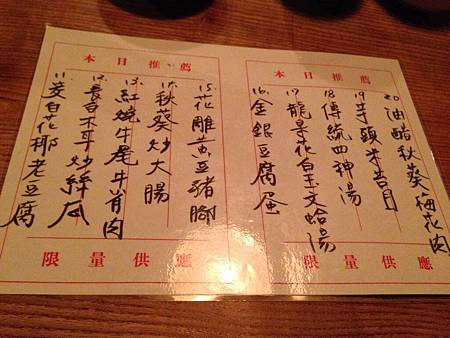 本日推薦
20.油醋秋葵梅花肉
19.芋頭米苔目
18.傳統四神湯
17.龍吳花白玉文蛤湯
16.金銀豆腐蛋
限量供應
本日推薦
15.花雕黃豆豬腳
14.秋葵炒大腸
13.紅燒牛尾牛肖肉
12.養白木耳炒絲瓜
11.麥白花椰老豆腐
限量供應